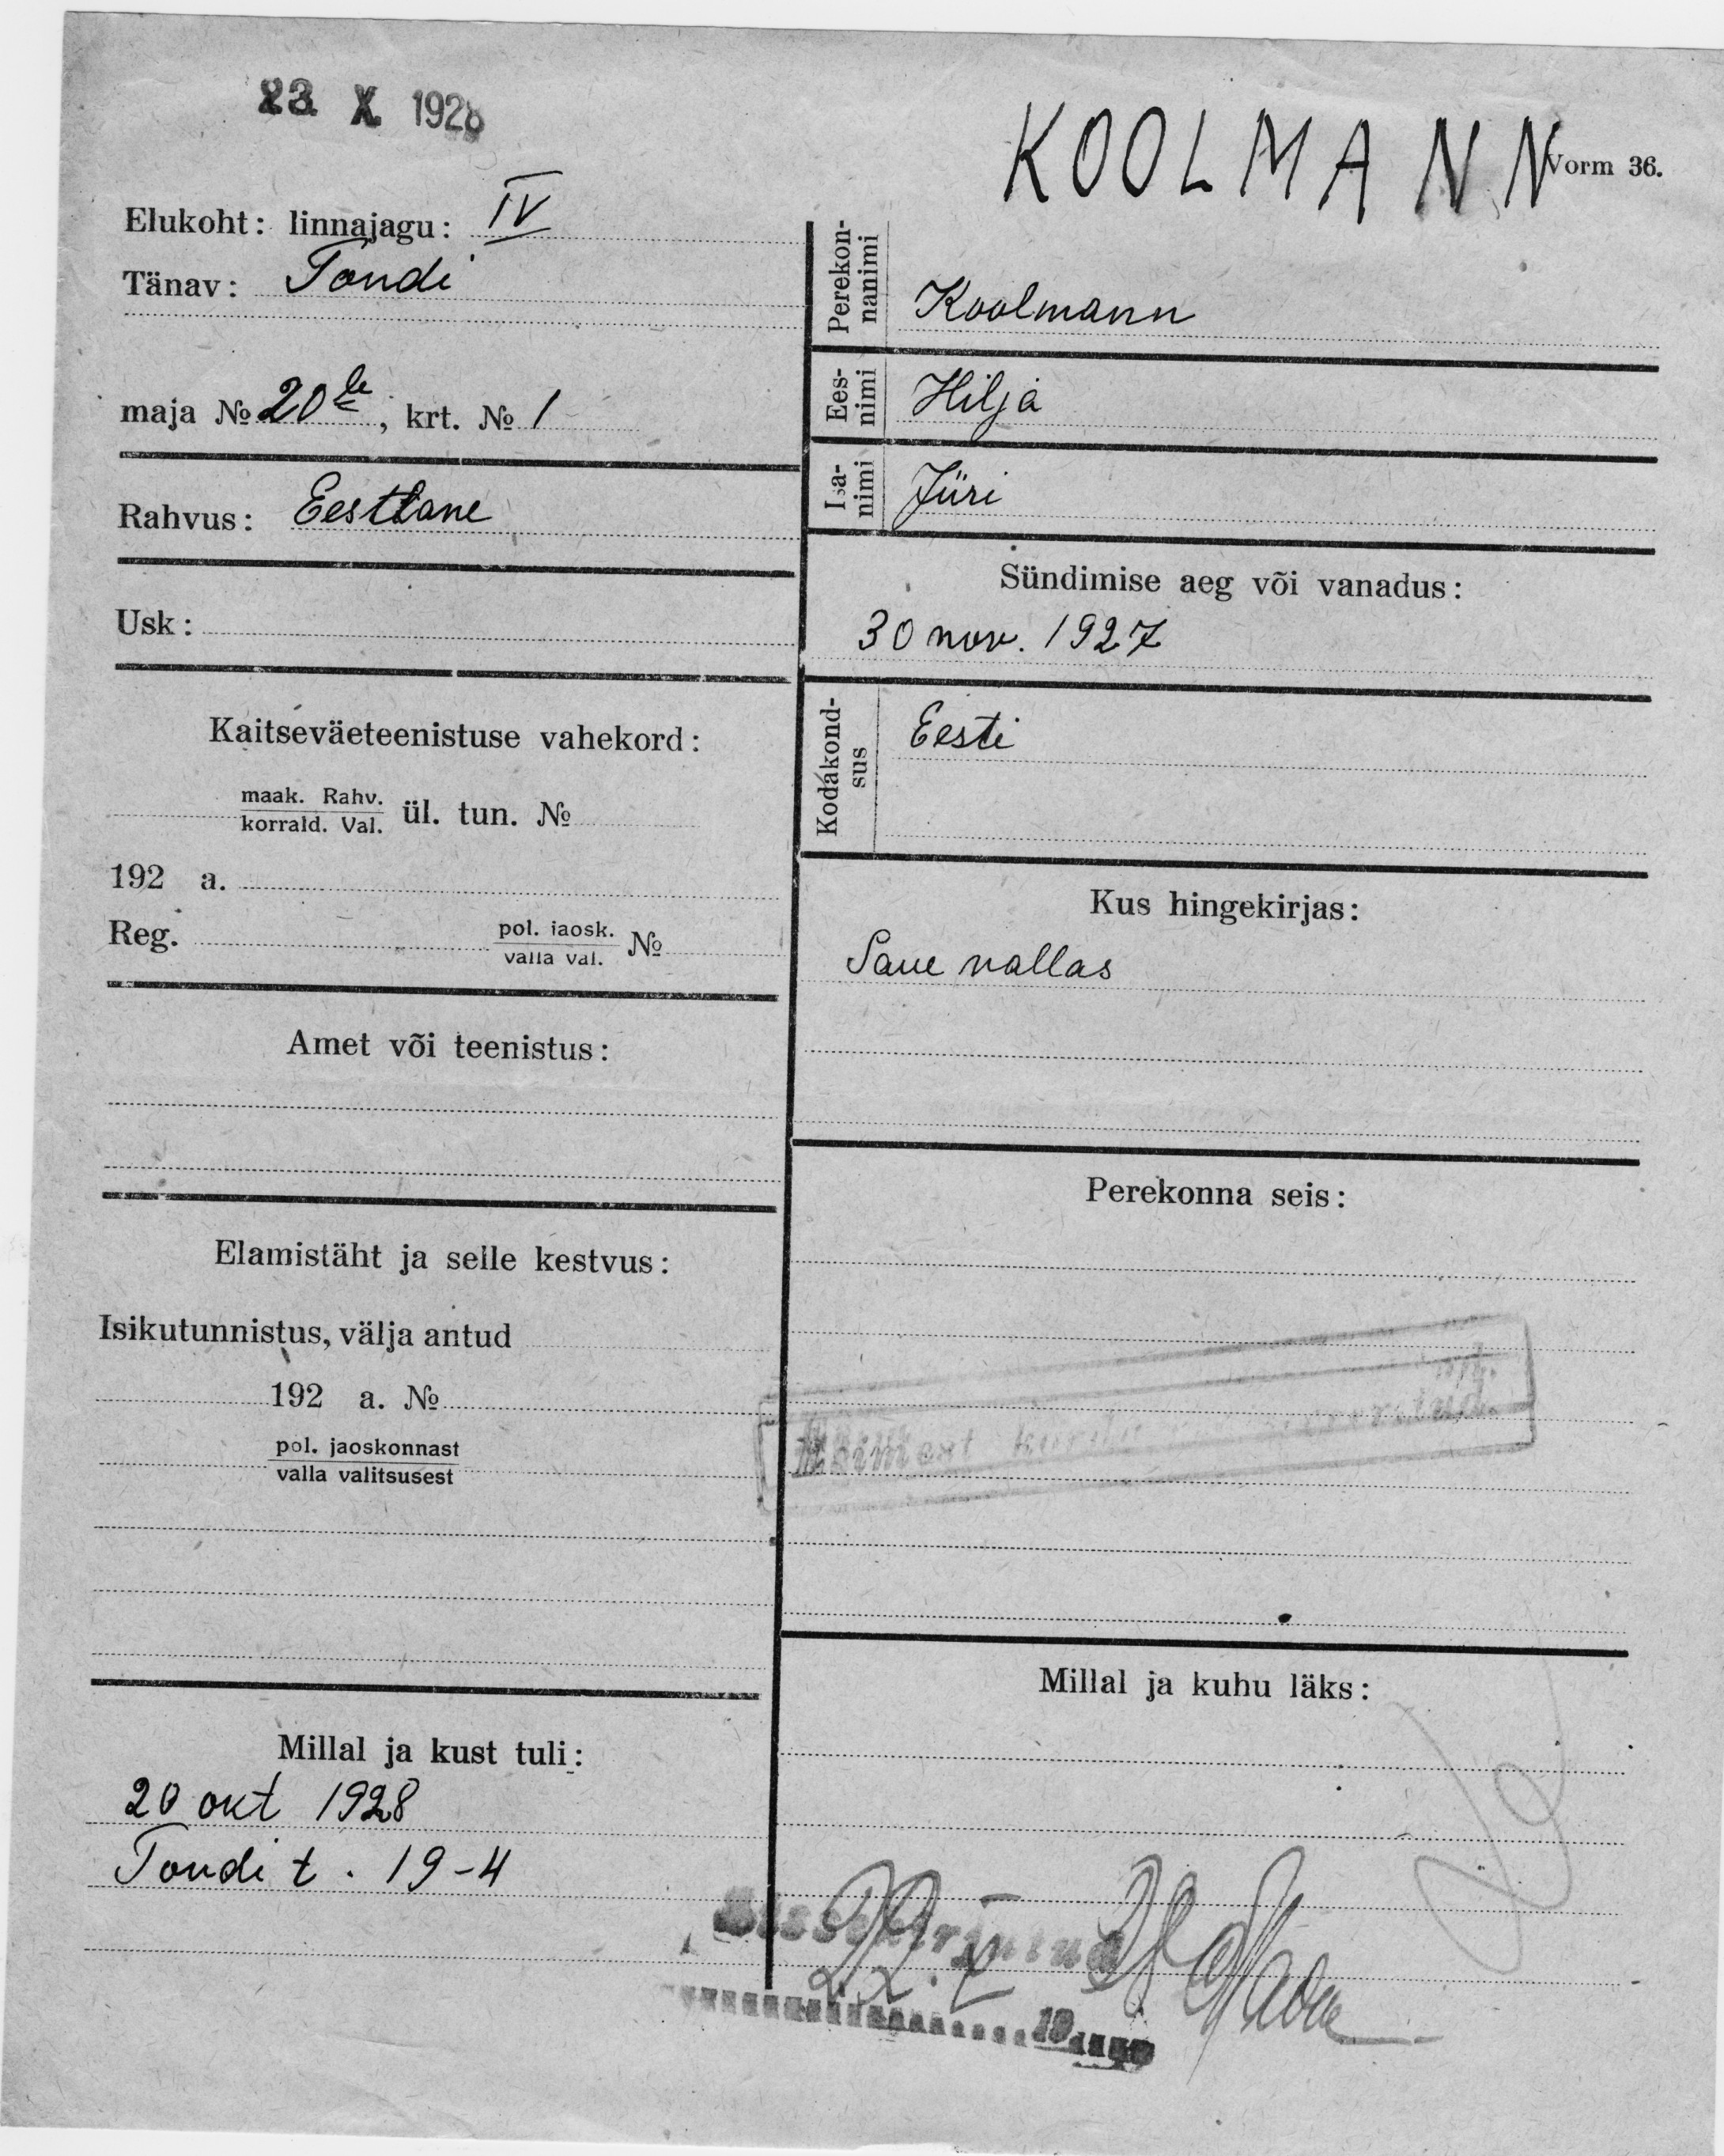 23 X 1928
KOOLMANN
Vorm 36.
Elukoht: linnajagu: IV
Tänav: Tondi
maja № 20 le, krt. № 1
Rahvus: Eestlane
Usk:
Kaitseväeteenistuse vahekord:
maak. Rahv.
korrald. Val. ül. tun. №
192 a.
Reg. pol. jaosk.
valla val. №
Amet või teenistus:
Elamistäht ja selle kestvus:
Isikutunnistus, välja antud
192 a. №
pol. jaoskonnast
valla valitsusest
Millal ja kust tuli:
20 okt 1928
Tondi t. 19-4
Perekon-
nanimi
Koolmann
Ees-
nimi
Hilja
Isa-
nimi
Jüri
Sündimise aeg või vanadus:
30 nov. 1927
Kodakond-
sus
Eesti
Kus hingekirjas:
Saue vallas
Perekonna seis:
Millal ja kuhu läks:
22. X
19